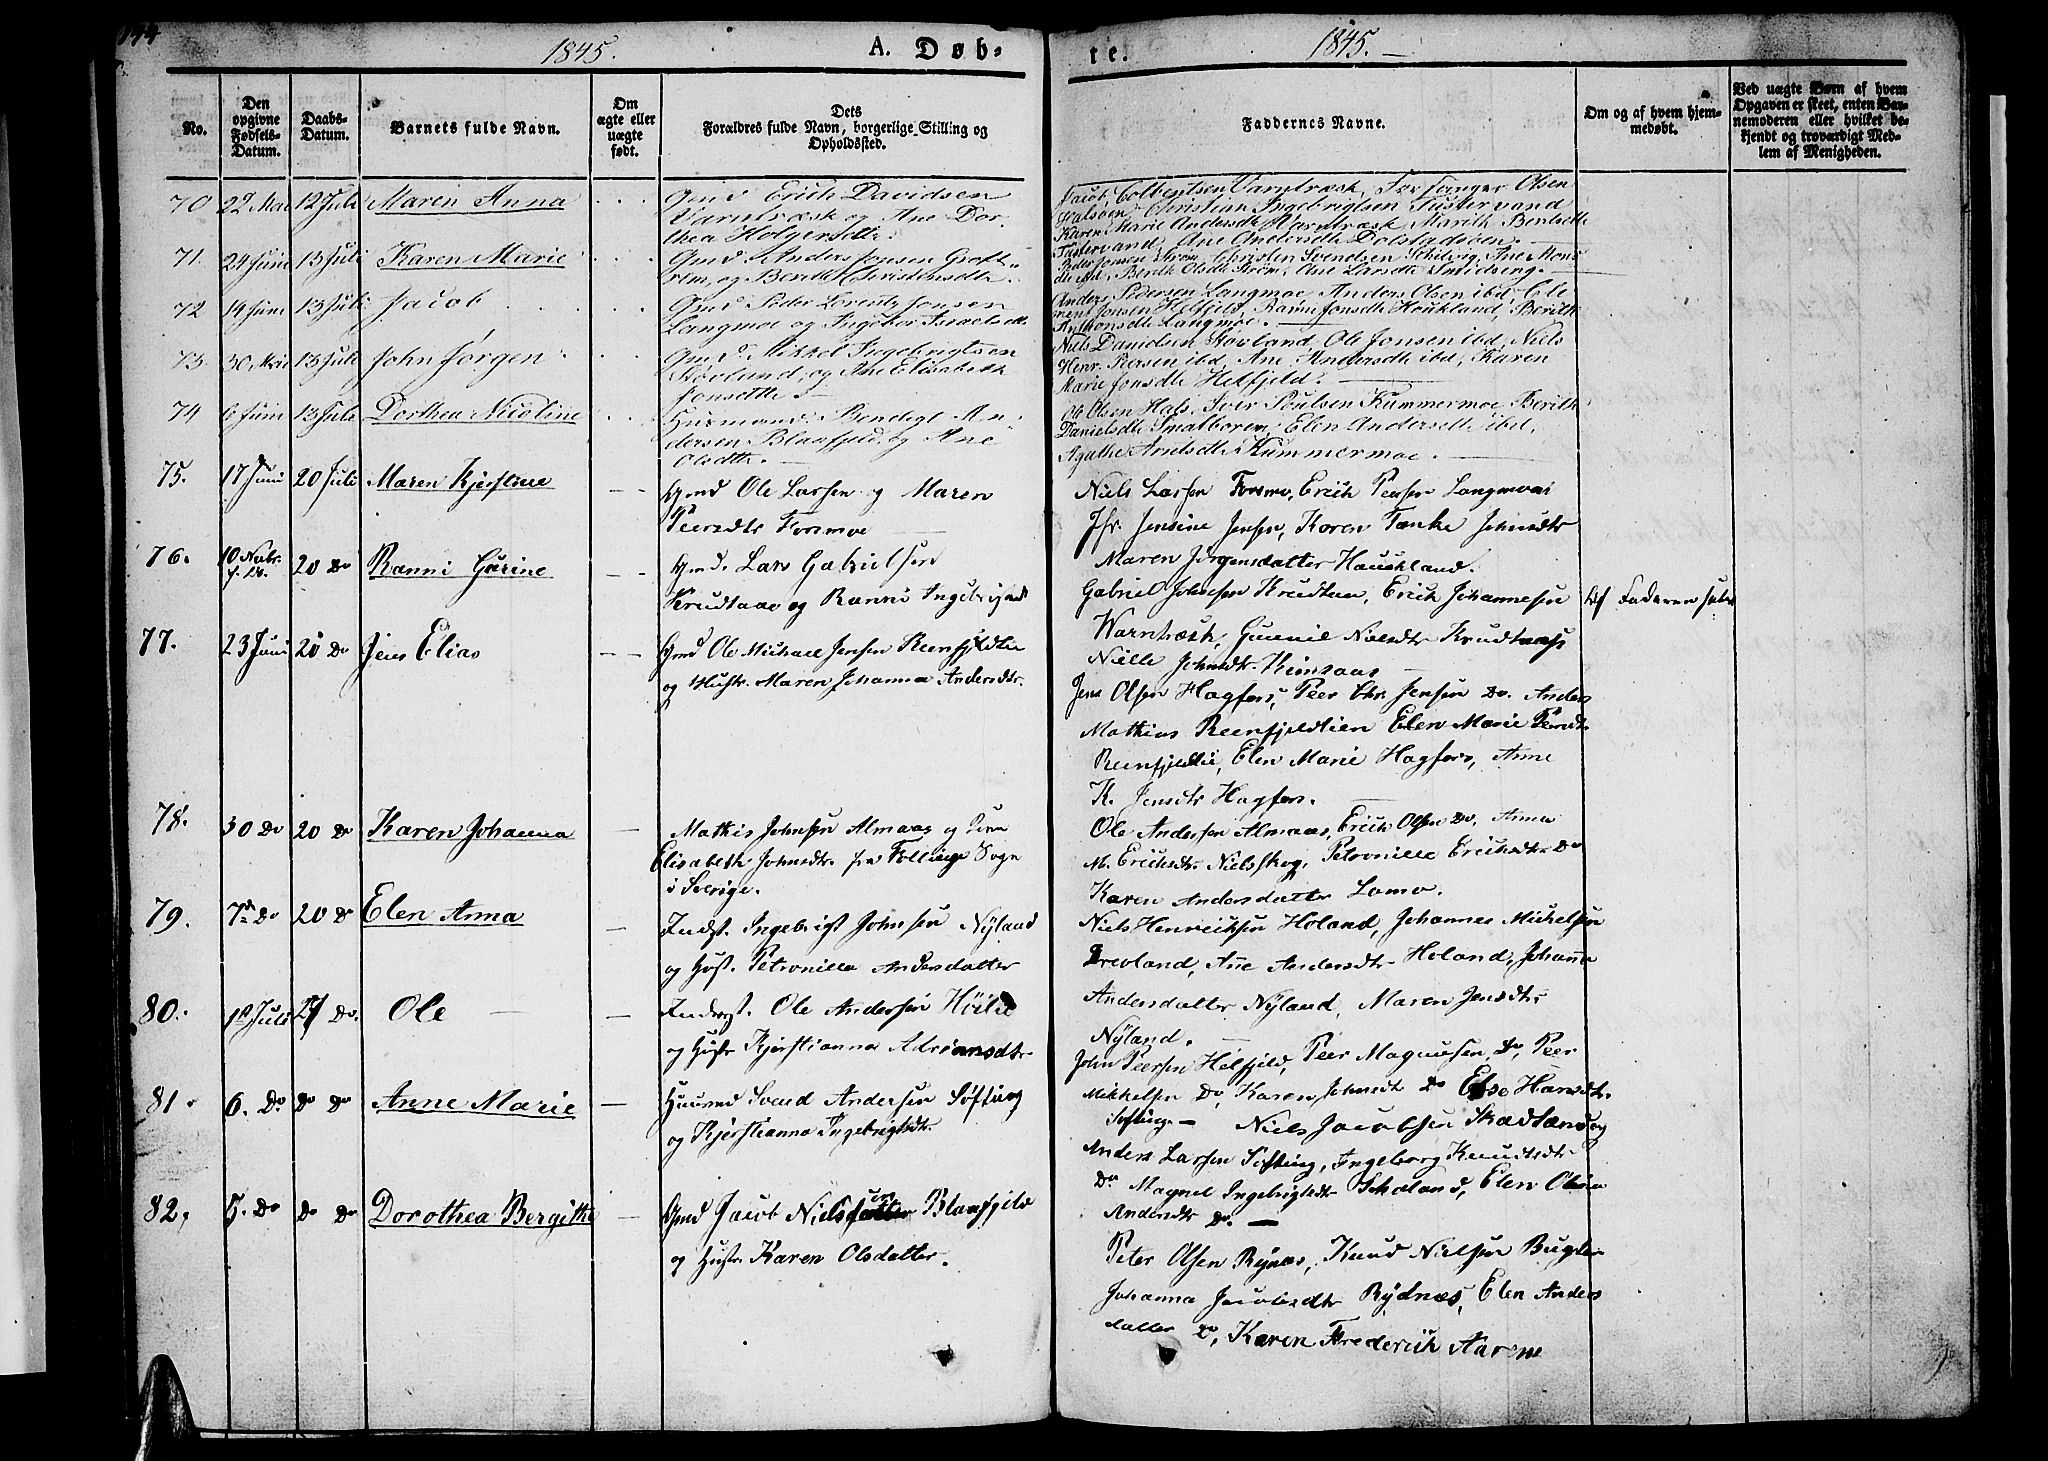 144
1845. A. Døb-
te. 1845. —
No.
Den opgivne Fødsels-Datum.
Daabs-Datum.
Barnets fulde Navn.
Om ægte eller uægte født.
Dets Forældres fulde Navn, borgerlige Stilling og Opholdssted.
Faddernes Navne.
Om og af hvem hjem-medøbt.
Ved uægte Børn af hvem Opgaven er skeet, enten Bar-nemoderen eller hvilket be-kjendt og troværdigt Med-lem af Menigheden.
70 22 Mai 12 Juli Maren Anna
Gmd Erich Davidsen
Varntræsk og Ane Dor-
thea Holgersdtr.
Jacob Varntræsk, Olsen
Christian Ingebrigtsen Tustervand
Karen Marie Andersdtr Varntræsk, Marith Bentsdtr
Tustervand, Ane Andersdtr Dolstadsøen.
71. 24 Juni 13 Juli Karen Marie
Gmd Anders Jonsen Groft-
rem, og Berith Christensdtr.
Peder Jonsen Strøm, Christen Svendsen Ane Mons-
dtr Berith Olsdtr Strøm, Ane Larsdtr Smidseng. —
72 14 Juni 13 Juli Jacob
Gmd Peder Lorentz Jonsen
Langmoe og Ingebor Israelsdtr
Anders Pedersen Langmoe, Anders Olsen ibd, Cle-
ment Jonsen Helfjeld, Jonsdtr Houkland, Berith
Langmoe.
73. 30 Mai 13 Juli John Jørgen
Gmd Mikkel Ingebrigtsen
Støvland, og Ane Elisabeth
Jonsdtr
Niels Davidsen Støvland, Ole Jonsen ibd, Niels
Henr. Persen ibd, Ane Andersdtr ibd, Karen
Marie Jonsdtr Helfjeld.
74 6 Juni 13 Juli Dorthea Nicoline
Husmand Bendigt An-
dersen Blaafjeld, og Ane
Olsdtr. —
Ole Olsen Hals, Iver Poulsen Kummermoe, Berith
Danielsdtr Smalboren, Elen Andersdtr ibd,
Agathe Arntsdtr Kummermoe. —
75. 17 Juni 20 Juli Maren Kjerstine
Gmd Ole Larsen og Maren
Peersdtr Forsmoe —
Niels Larsen Forsmo, Erich Peersen Langmoen
Jfr. Jensine Jensen, Karen Tanke Johnsdtr
Maren Jørgensdatter Hauckland.
76. 10 Novbr. 20 Do Ranni Gurine
Gmd. Lars Gabrielsen
Krudtaae og Ranni Ingebrigtsdtr
Gabriel Johnsen Krudtaa, Erich Johannesen
Warntræsk, Gunnil Nielsdtr Krudtaa
Nille Johnsdtr. Kunsaas
Af Faderen selv
77. 23 Juni 20 Do Jens Elias
Gmd Ole Michael Jensen Reenfjeldlie
og Hustr. Maren Johanna Andersdtr.
Jens Olsen Hagfors, Peer Chr. Jensen Do. Anders
Mathias Reenfjeldlien Elen Marie Peersdtr
Reenfjeldlie, Elen Marie Hagfors, Anne
K. Jensdtr Hagfors.
78. 30 Do 20 Do Karen Johanna
Mathis Johnsen Almaas og
Elisabeth Johnsdtr. fra Føllinge Sogn
i Sverige.
Ole Andersen Almaas, Erich Olsen Do. Anna
M. Erichsdtr. Nielsskog, Petronille Erichsdtr Do
Karen Andersdatter Lomo.
79. 7de Do 20 Do Elen Anna
Inderst. Ingebrigt Johnsen Nÿland
og Hust. Petronilla Andersdatter
Niels Henrichsen Holand, Johannes Michelsen
Drevland, Ane Andersdtr Holand, Johanna
Andersdatter Nÿland, Maren Jensdtr
Nÿland. —
80. 1st Juli 27 Do. Ole —
Inderst. Ole Andersen Høilie
og Hustr Kjerstianna Adriansdtr
John Peersen Helfjeld, Peer Magnusen, Do, Peer
Mikkelsen Do, Karen Johnsdtr Do Else Hansdtr.
Søfting —
81. 6. Do Do Do Anne Marie
Huusmd Svend Andersen Søfting
og Kjerstianna Ingebrigtsdtr.
Niels Jacobsen
Anders Larsen Søfting, Ingeborg Knudsdtr
Do Magnel Ingebrigtsdtr Elen Olivia
Andersdtr Do. —
82. 5. Do Do Do Dorothea Bergithe
Gmd Jacob Nielssen Blaafjeld
og Hustr. Karen Olsdatter.
Peter Olsen Rÿnæs, Knud Nielsen
Johanna Jacobsdtr Rÿdnæs, Elen Anders
datter Do, Karen Frederich Aarene